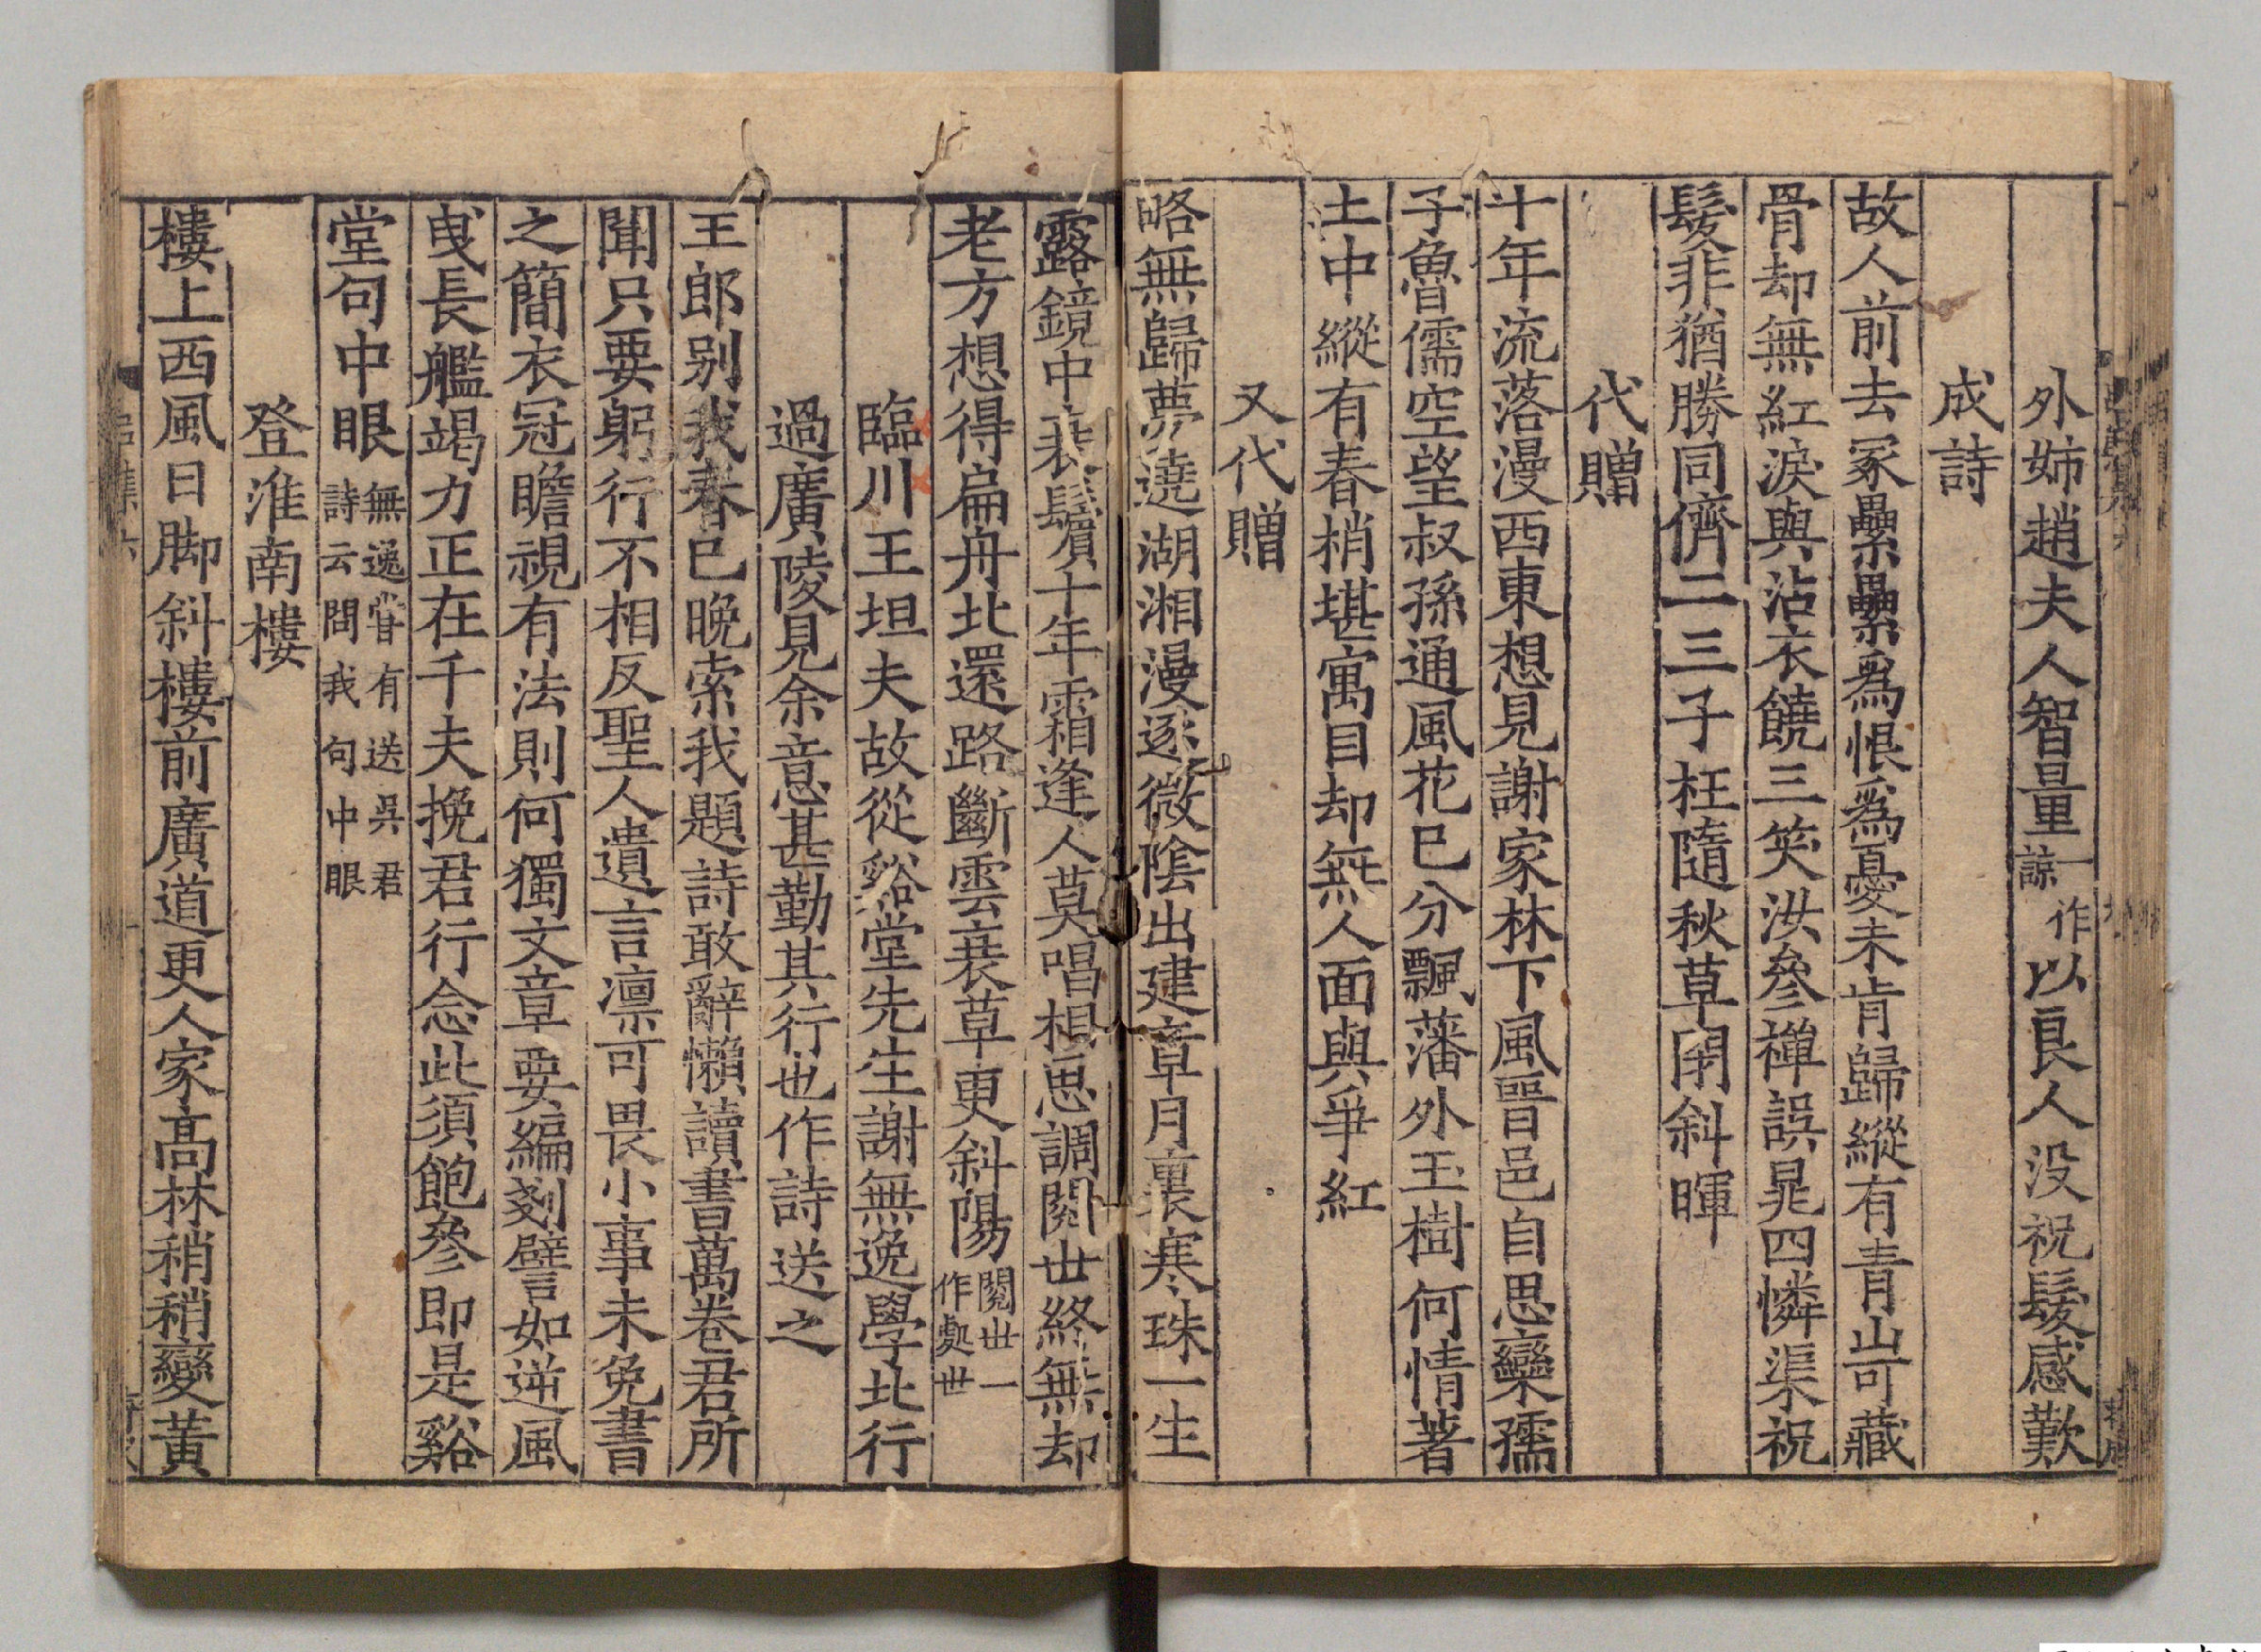 外姉趙夫人智量一作諒以良人没祝髮感歎
成詩
故人前去冢纍纍爲恨爲憂未肯歸縱有青山可藏
骨却無紅淚與沾衣饒三笑洪參禪誤晁四憐渠祝
髮非猶勝同儕二三子枉隨秋草閉斜暉
代贈
十年流落漫西東想見謝家林下風晉邑自思欒孺
子魯儒空望叔孫通風花已分飄藩外玉樹何情著
土中縱有春梢堪寓目却無人面與爭紅
又代贈
略無歸夢遶湖湘漫逐微陰出建章月裏寒珠一生
露鏡中衰鬢十年霜逢人莫唱相思調閱世終無却
老方想得扁舟北還路斷雲衰草更斜陽閱世一作處世
臨川王坦夫故從谿堂先生謝無逸學北行
過廣陵見余意甚勤其行也作詩送之
王郎别我春已晚索我題詩敢辭懶讀書萬卷君所
聞只要躬行不相反聖人遺言凛可畏小事未免書
之簡衣冠瞻視有法則何獨文章要編剗譬如逆風
曵長艦竭力正在千夫挽君行念此須飽參即是谿
堂句中眼無逸嘗有送吳君詩云問我句中眼
登淮南樓
樓上西風日脚斜樓前廣道更人家高林稍稍變黃